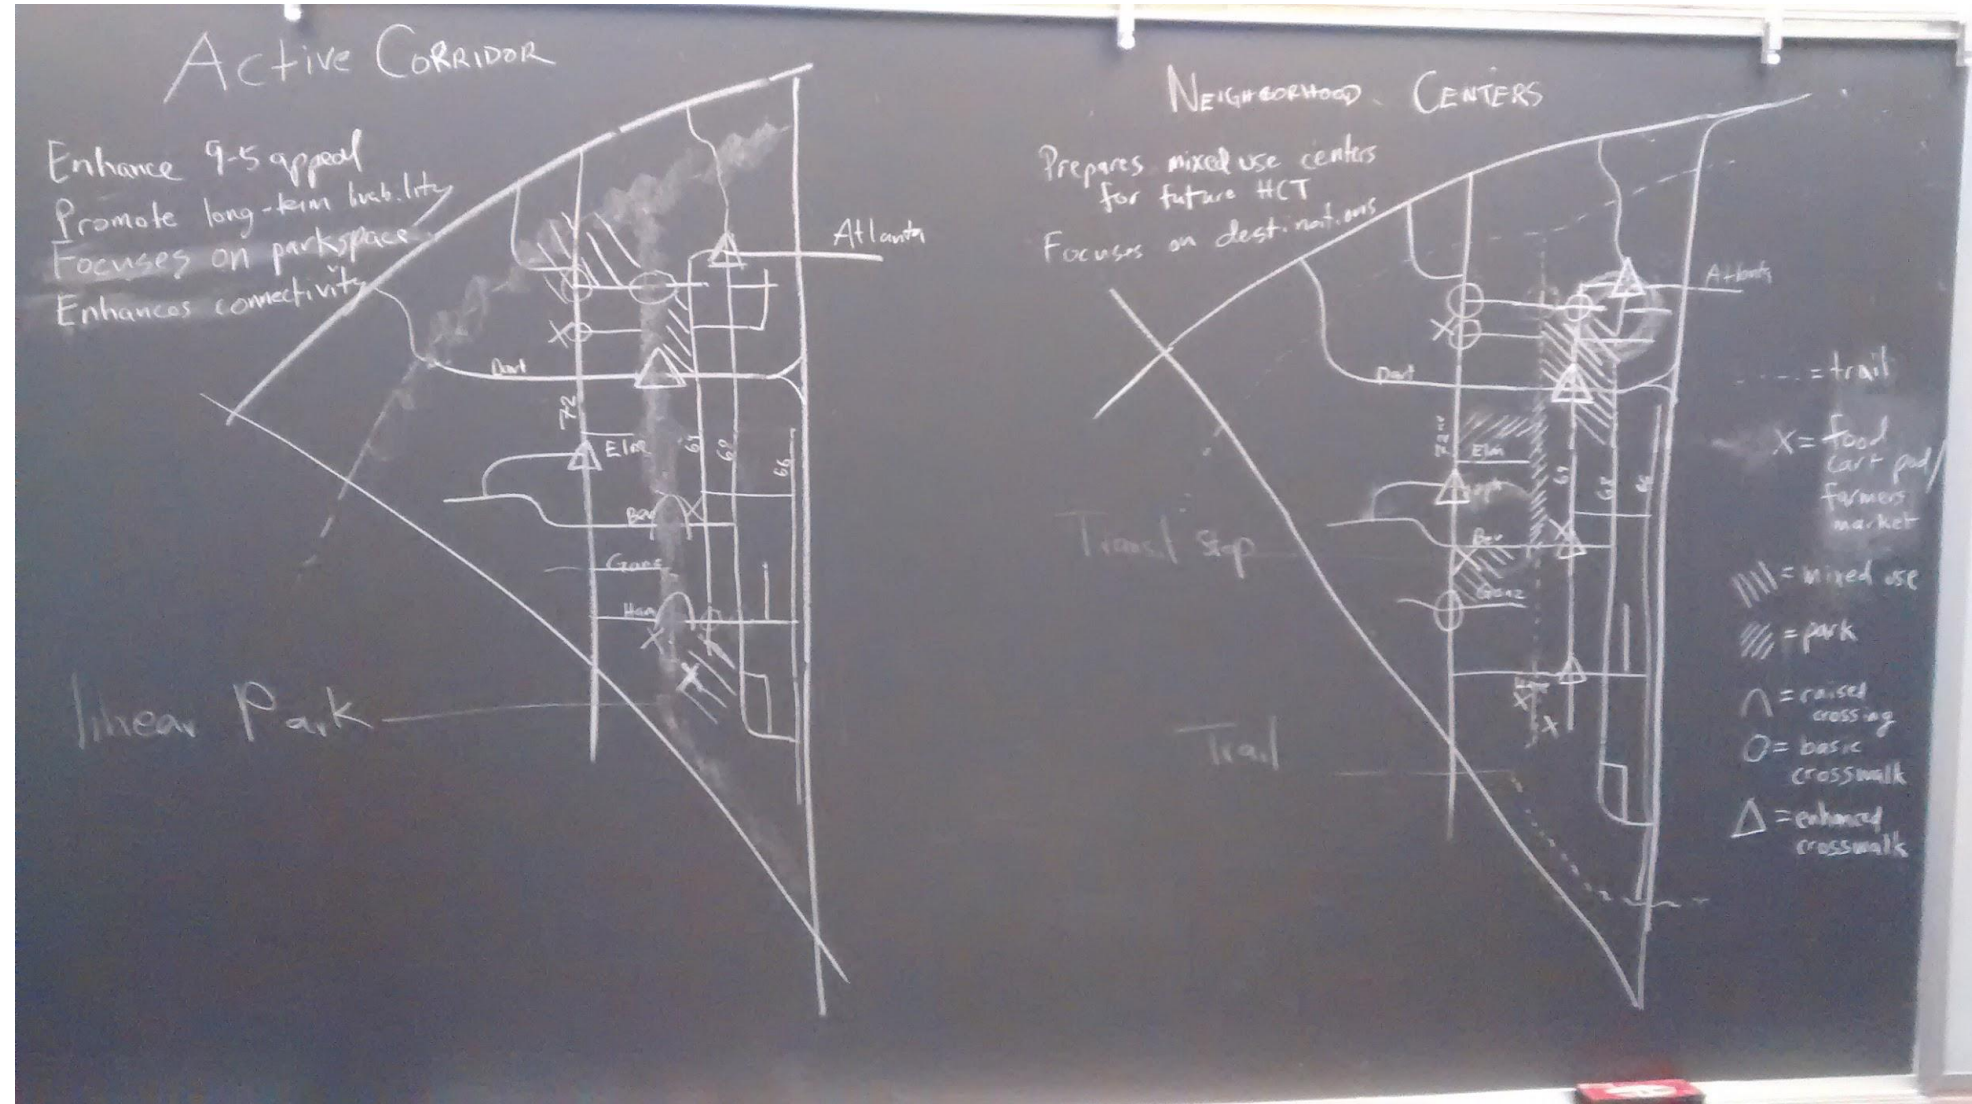 Active CORRIDOR
Enhance 9-5 appeal
Promote long-term livability
Focuses on parkspace
Enhances connectivity
Atlanta
Dart
72
Elm
69
68
66
Bev
Gans
Ham
X
X
X
X
linear Park
NEIGHBORHOOD CENTERS
Prepares mixed use centers
for future HCT
Focuses on destinations
Atlanta
X
Dart
72nd
Elm
69
68
Bev
X
X
Gonz
X
X
Transit Stop
Trail
---- = trail
X = food
cart pod/
farmers
market
= mixed use
= park
= raised
crossing
= basic
crosswalk
= enhanced
crosswalk